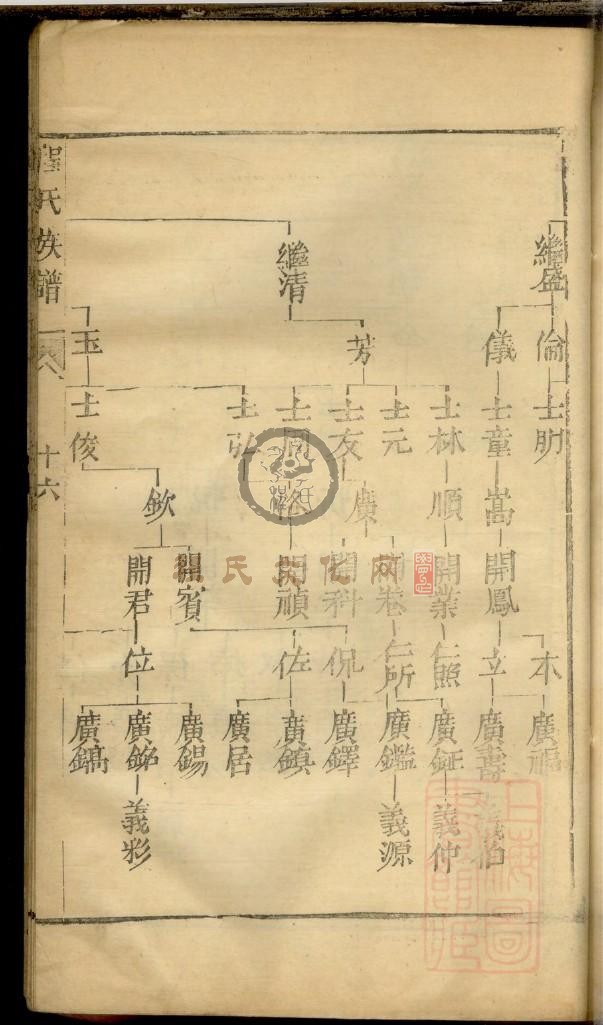 繼盛
繼清
倫
儀
芳
玉
士童
士林
士元
士友
士弘
士俊
嵩
順
廣
欽
開鳳
開業
開科
開禎
開賓
開君
本
立
仁照
仁所
侃
佐
位
廣福
廣壽
廣鉦
廣鑑
廣鐸
廣鎮
廣居
廣錫
廣銻
廣鎬
義伯
義仲
義源
義彩
程氏族譜
十六
程氏文化网